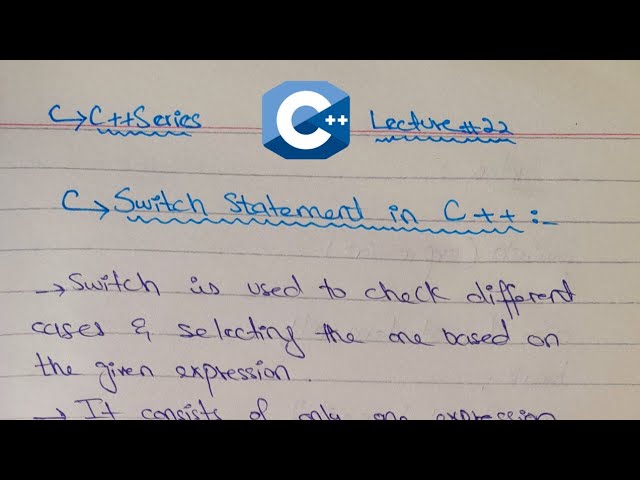 C++ Series
C++
Lecture #22
Switch Statement in C++ :-
→ Switch is used to check different
cases & selecting the one based on
the given expression.
→ It consists of only one expression